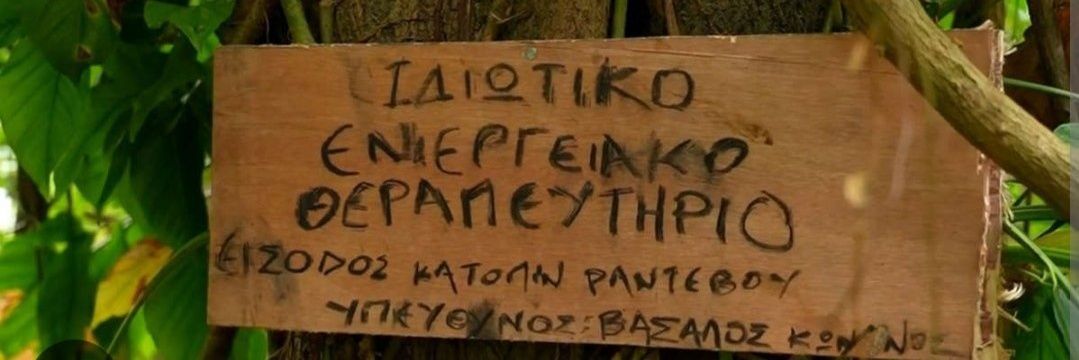 ΙΔΙΩΤΙΚΟ
ΕΝΕΡΓΕΙΑΚΟ
ΘΕΡΑΠΕΥΤΗΡΙΟ
ΕΙΣΟΔΟΣ ΚΑΤΟΠΙΝ ΡΑΝΤΕΒΟΥ
ΥΠΕΥΘΥΝΟΣ: ΒΑΣΑΛΟΣ